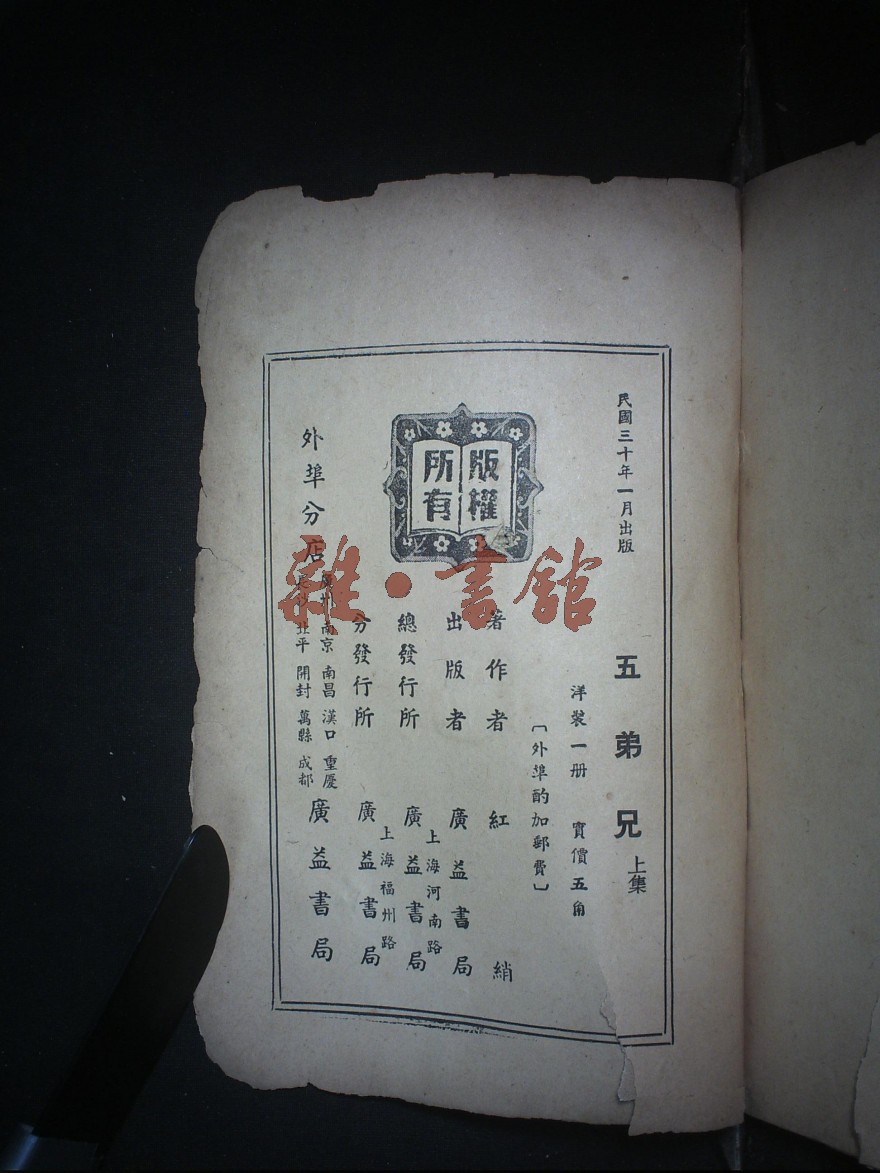 民國三十年一月出版
五弟兄 上集
洋裝一册 實價五角
〔外埠酌加郵費〕
版權
所有
著作者 紅綃
出版者 廣益書局
上海河南路
總發行所 廣益書局
上海福州路
分發行所 廣益書局
外埠分店
廣州 南京 南昌 漢口 重慶
長沙 北平 開封 萬縣 成都
廣益書局
雜·書館